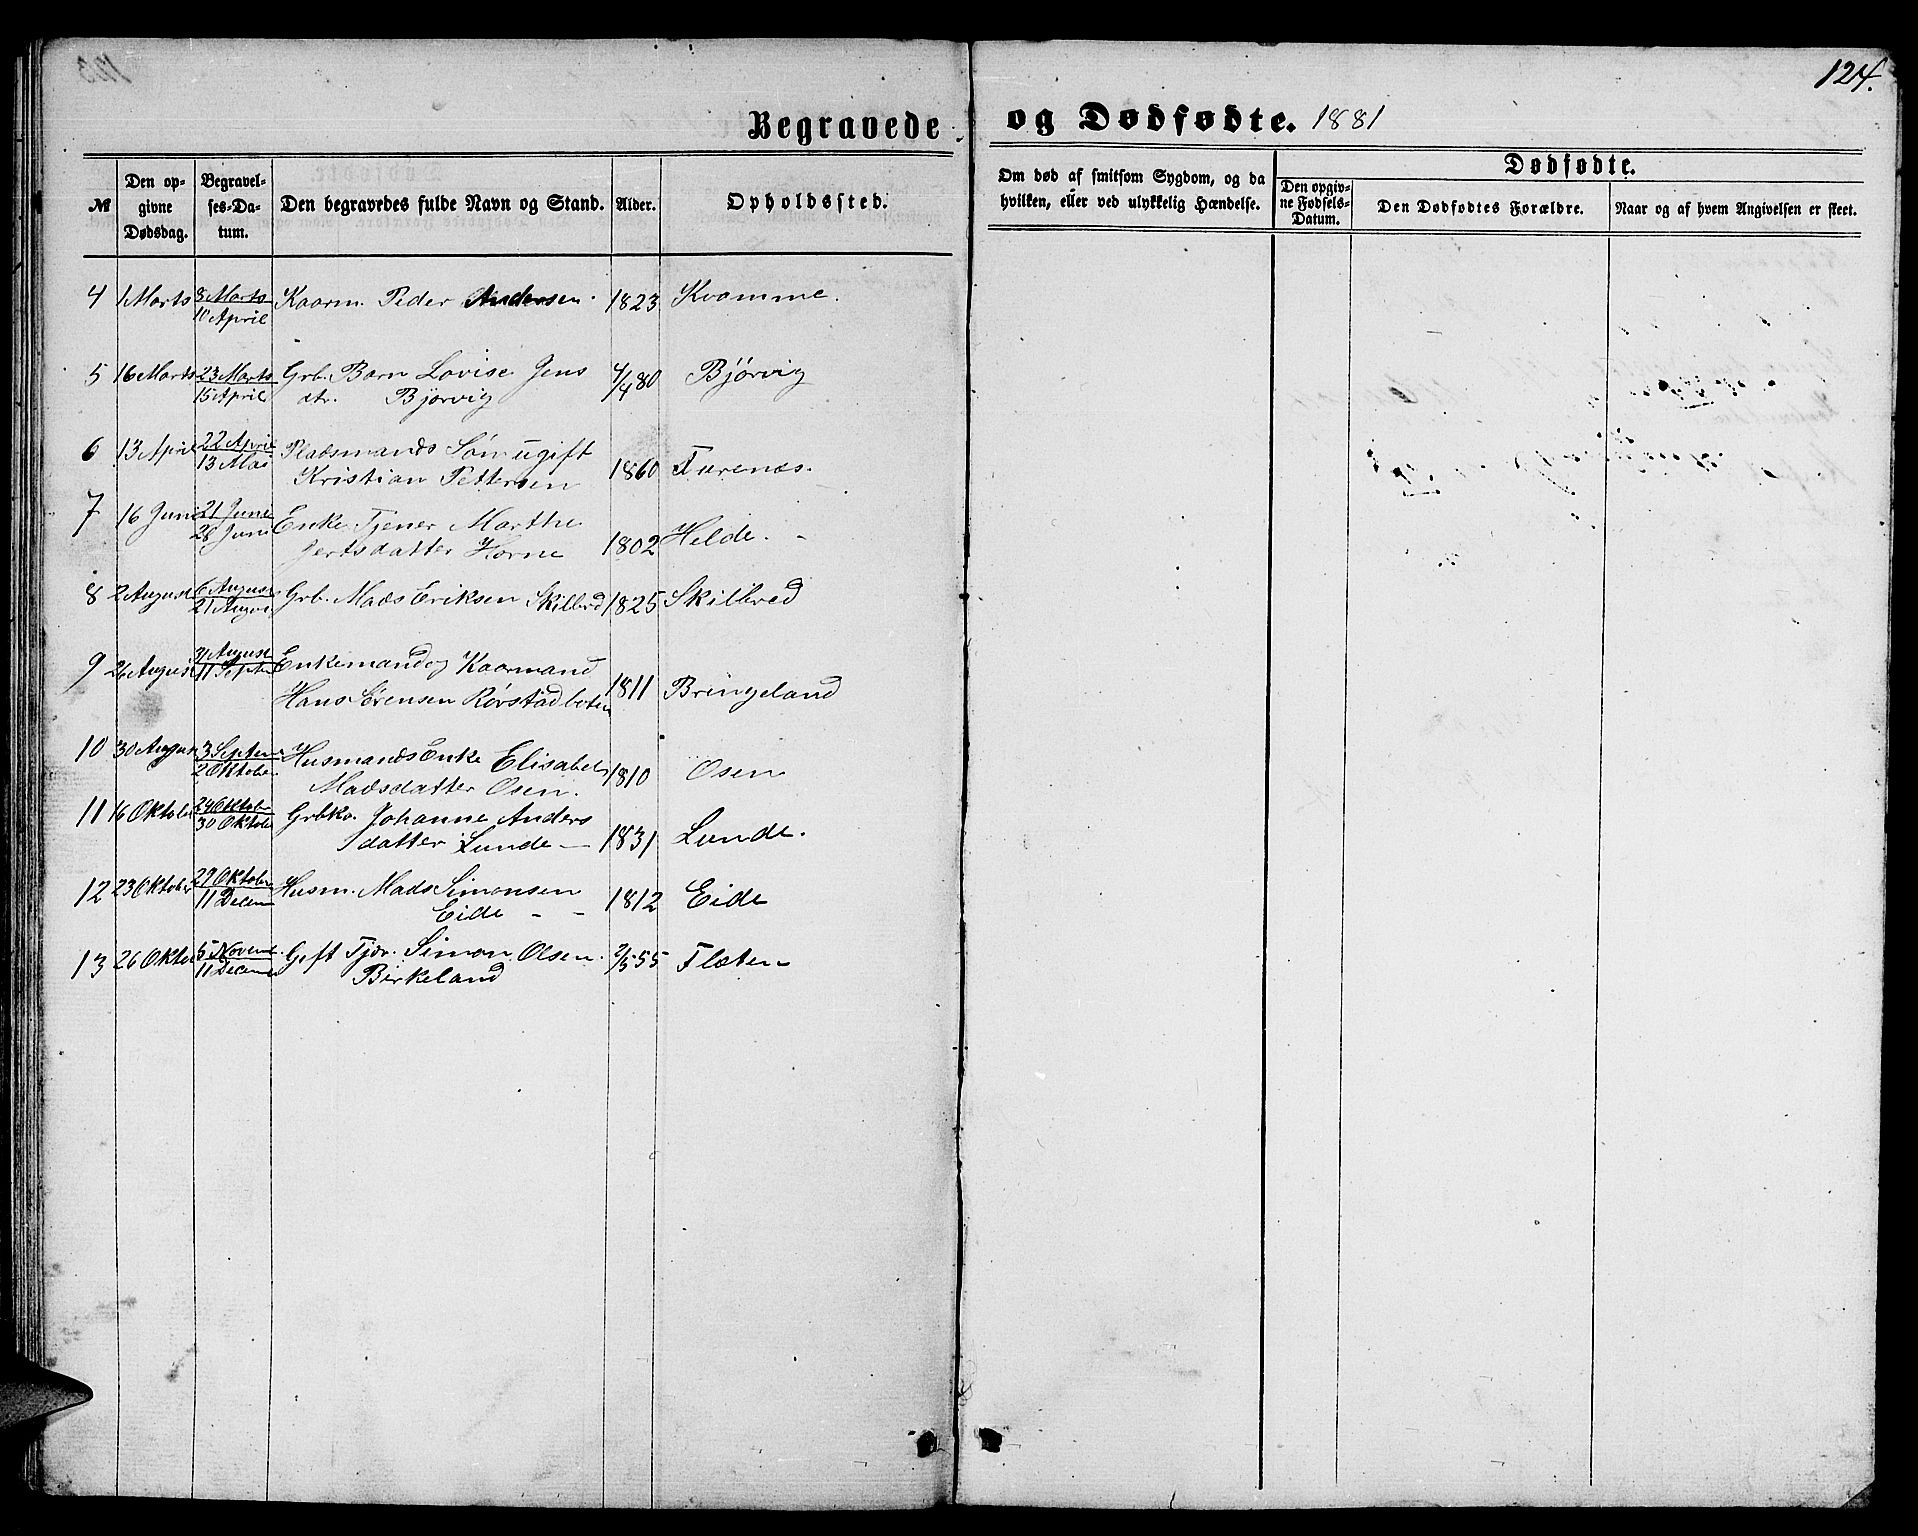 124.
Begravede og Dødfødte. 1881
№
Den opgivne Dødsdag.
Begravelses-Datum.
Den begravedes fulde Navn og Stand.
Alder.
Opholdssted.
Om død af smitsom Sygdom, og da hvilken, eller ved ulykkelig Hændelse.
Dødfødte.
Den opgivne Fødsels-Datum.
Den Dødfødtes Forældre.
Naar og af hvem Angivelsen er skeet.
4 1 Marts 8 Marts Kaarm. Peder Andersen. 1823 Kvamme.
10 April
5 16 Marts 23 Marts Grb. Barn Lovise Jens 4/4 80 Bjørvig
15 April dtr. Bjørvig
6 13 April 22 April Pladsmands Søn ugift
13 Mai Kristian Pettersen 1860 Furenæs.
7 16 Juni 21 June Enke Tjener Marthe
28 Juni Gertsdatter Horne 1802 Helde. -
8 2 August 6 August Grb. Mads Eriksen Skilbrd 1825 Skilbred
21 August
9 26 August 31 August Enkemand og Kaarmand
11 Septbr Hans Sørensen Rørstadbotn 1811 Bringeland
10 30 August 3 Septem Husmands Enke Elisabet
2 Oktober Madsdatter Osen. 1810 Osen
11 16 Oktober 24 Oktober Grbko. Johanne Anders
30 Oktober datter Lunde - 1831 Lunde.
12 23 Oktober 29 Oktober Husm. Mads Simonsen 1812 Eide
11 Decem Eide - -
13 26 Oktob 5 Novem Gift Tjdr. Simon Olsen. 2/5 55 Flæten
11 Decem Birkeland